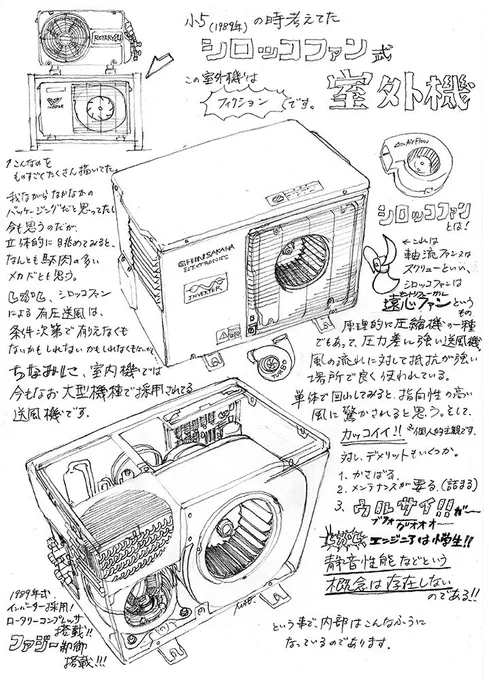 小5(1989年)の時考えてた
シロッコファン式
室外機
この室外機は
フィクション
です。
ROTARY
↑こんなのを
ものすごくたくさん描いてた。
我ながらなかなかの
パッケージングだと思ってたし
今も思うのだが、
立体的に眺めてみると、
なんとも駄肉の多い
メカだとも思う。
シロッコファン
による有圧送風は、
条件次第で有えなくも
ないかもしれないかもしれなくもない
ちなみに、室内機では
今もなお大型機種で採用されてる
送風機です。
CHINSAKANA
ELECTRONICS
INVERTER
Air flow
シロッコファン
とは!
←これは
軸流ファン又は
スクリューといい、
シロッコファンは
遠心ファンという
もの
TURBO
原理的に圧縮機の一種
でもあって、圧力差に強い送風機
風の流れに対して抵抗が強い
場所で良く使われている。
単体で回してみると、指向性の高い
風に驚かされると思う。そして、
カッコイイ!! ※個人的主観です.
対し、デメリットもいくつか。
1. かさばる。
2. メンテナンスが要る。(詰まる)
3. ウルサイ!!ガー
ブフォ グオオオー
エンジニアは小学生!!
静音性能などという
概念は存在しない
のである!!
1989年式、
インバーター採用!
ロータリーコンプレッサ
搭載!!
ファジー制御
搭載!!!
という事で、内部はこんなふうに
なっているのであります.